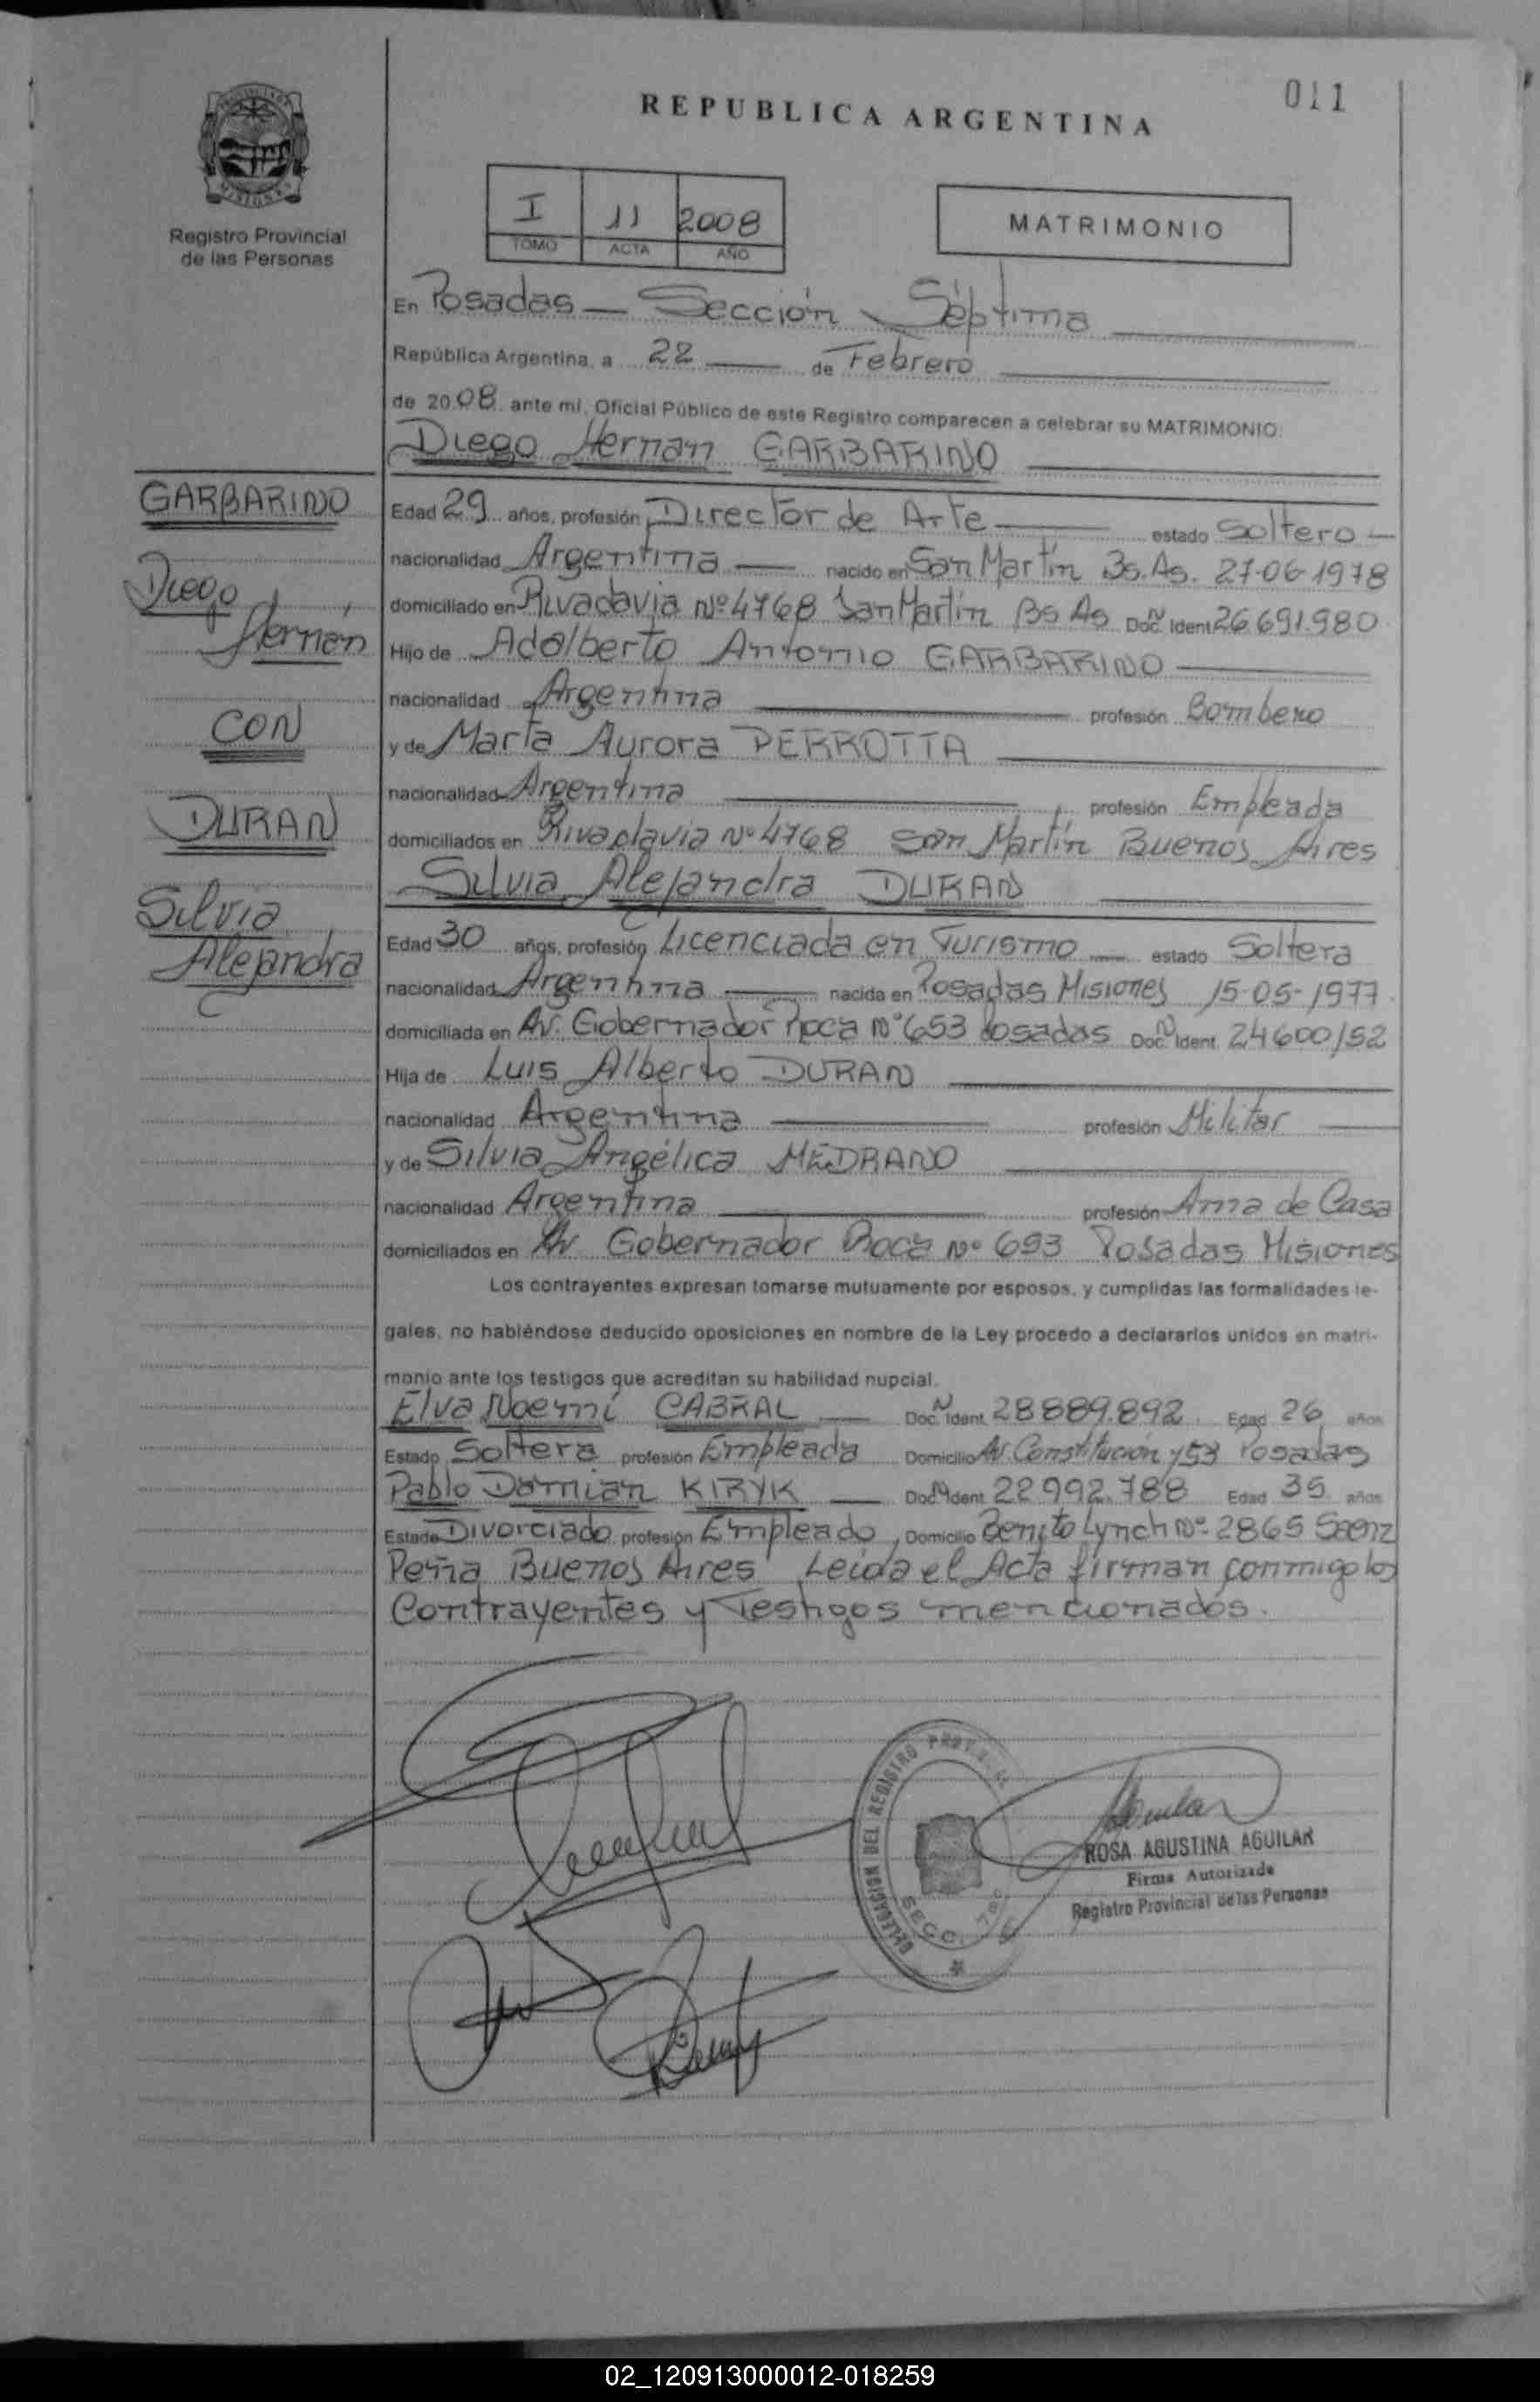 011
REPUBLICA ARGENTINA
Registro Provincial
de las Personas
I 11 2008
TOMO ACTA AÑO
MATRIMONIO
En Posadas — Sección Séptima
República Argentina, a 22 de Febrero
de 2008 ante mí, Oficial Público de este Registro comparecen a celebrar su MATRIMONIO:
Diego Hernan GARBARINO
GARBARINO
Diego
Hernán
CON
DURAN
Silvia
Alejandra
Edad 29 años, profesión Director de Arte estado Soltero
nacionalidad Argentina nacido en San Martín Bs. As. 27-06-1978
domiciliado en Rivadavia Nº 4768 San Martín Bs As Doc. Nº Ident 26.691.980
Hijo de Adalberto Antonio GARBARINO
nacionalidad Argentina profesión Bombero
y de Marta Aurora PERROTTA
nacionalidad Argentina profesión Empleada
domiciliados en Rivadavia Nº 4768 San Martín Buenos Aires
Silvia Alejandra DURAN
Edad 30 años, profesión Licenciada en Turismo estado Soltera
nacionalidad Argentina nacida en Posadas Misiones 15-05-1977
domiciliada en Av. Gobernador Roca Nº 653 Posadas Doc. Nº Ident. 24600152
Hija de Luis Alberto DURAN
nacionalidad Argentina profesión Militar
y de Silvia Angélica MEDRANO
nacionalidad Argentina profesión Ama de Casa
domiciliados en Av Gobernador Roca Nº 693 Posadas Misiones
Los contrayentes expresan tomarse mutuamente por esposos, y cumplidas las formalidades le-
gales, no habiéndose deducido oposiciones en nombre de la Ley procedo a declararlos unidos en matri-
monio ante los testigos que acreditan su habilidad nupcial.
Elva Noemí CABRAL Doc. Nº Ident. 28889.892 Edad 26 años
Estado Soltera profesión Empleada Domicilio Av. Constitución y 53 Posadas
Pablo Damian KIRYK Doc. Nº Ident. 22992.788 Edad 35 años
Estado Divorciado profesión Empleado, Domicilio Benito Lynch Nº 2865 Saenz
Peña Buenos Aires Leida el Acta firman conmigo los
Contrayentes y Testigos mencionados.
DELEGACION DEL REGISTRO
SECC. 7ma
ROSA AGUSTINA AGUILAR
Firma Autorizada
Registro Provincial de las Personas
02_120913000012-018259